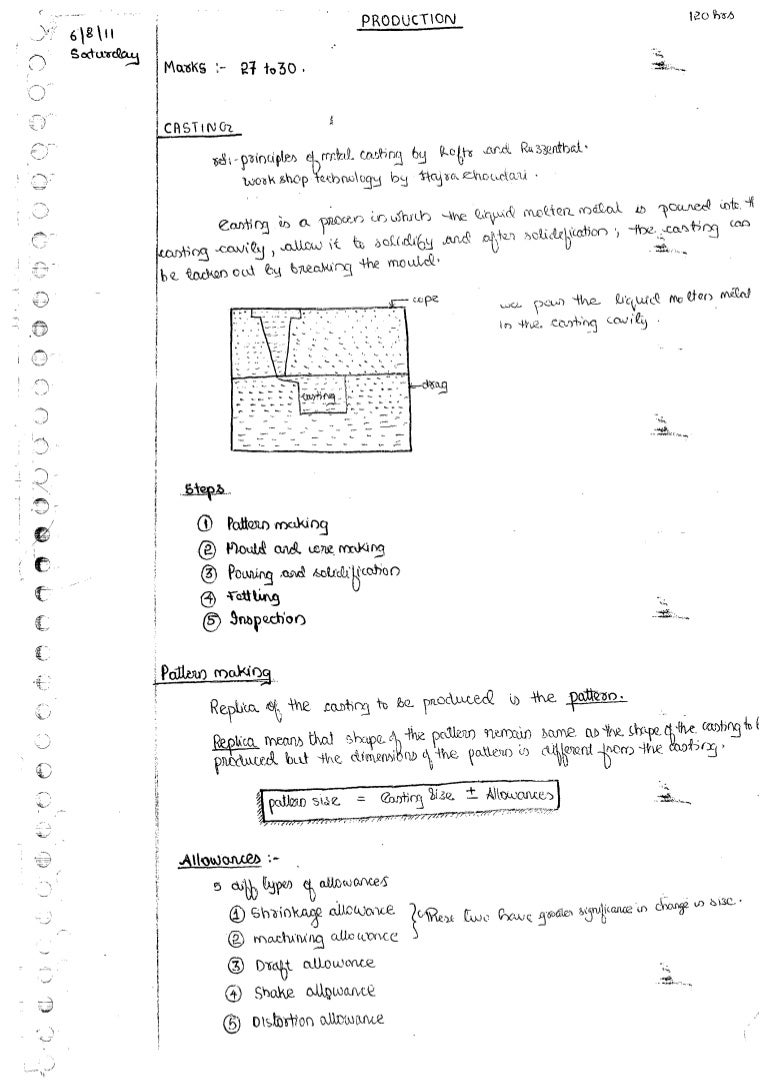 PRODUCTION
120 hrs
6/8/11
Saturday
Marks :- 27 to 30.
CASTING
ref:- principles of metal casting by and
work shop technology by Hajra Choudari.
Casting is a process in which the liquid molten metal is poured into
casting cavity, allow it to solidify and after solidification, the casting can
be tacken out by breaking the mould.
cope
we pour the liquid molten metal
in the casting cavity.
drag
casting
Steps
① Pattern making
② Mould and core making
③ Pouring and solidification
④ Fettling
⑤ Inspection
Pattern making
Replica of the casting to be produced is the pattern.
Replica means that shape of the pattern remain same as the shape of the casting to
produced but the dimensions of the pattern is different from the casting.
pattern size = Casting size ± Allowances
Allowances :-
5 diff types of allowances
① Shrinkage allowance
These two have greater significance in change in size.
② machining allowance
③ Draft allowance
④ Shake allowance
⑤ Distortion allowance